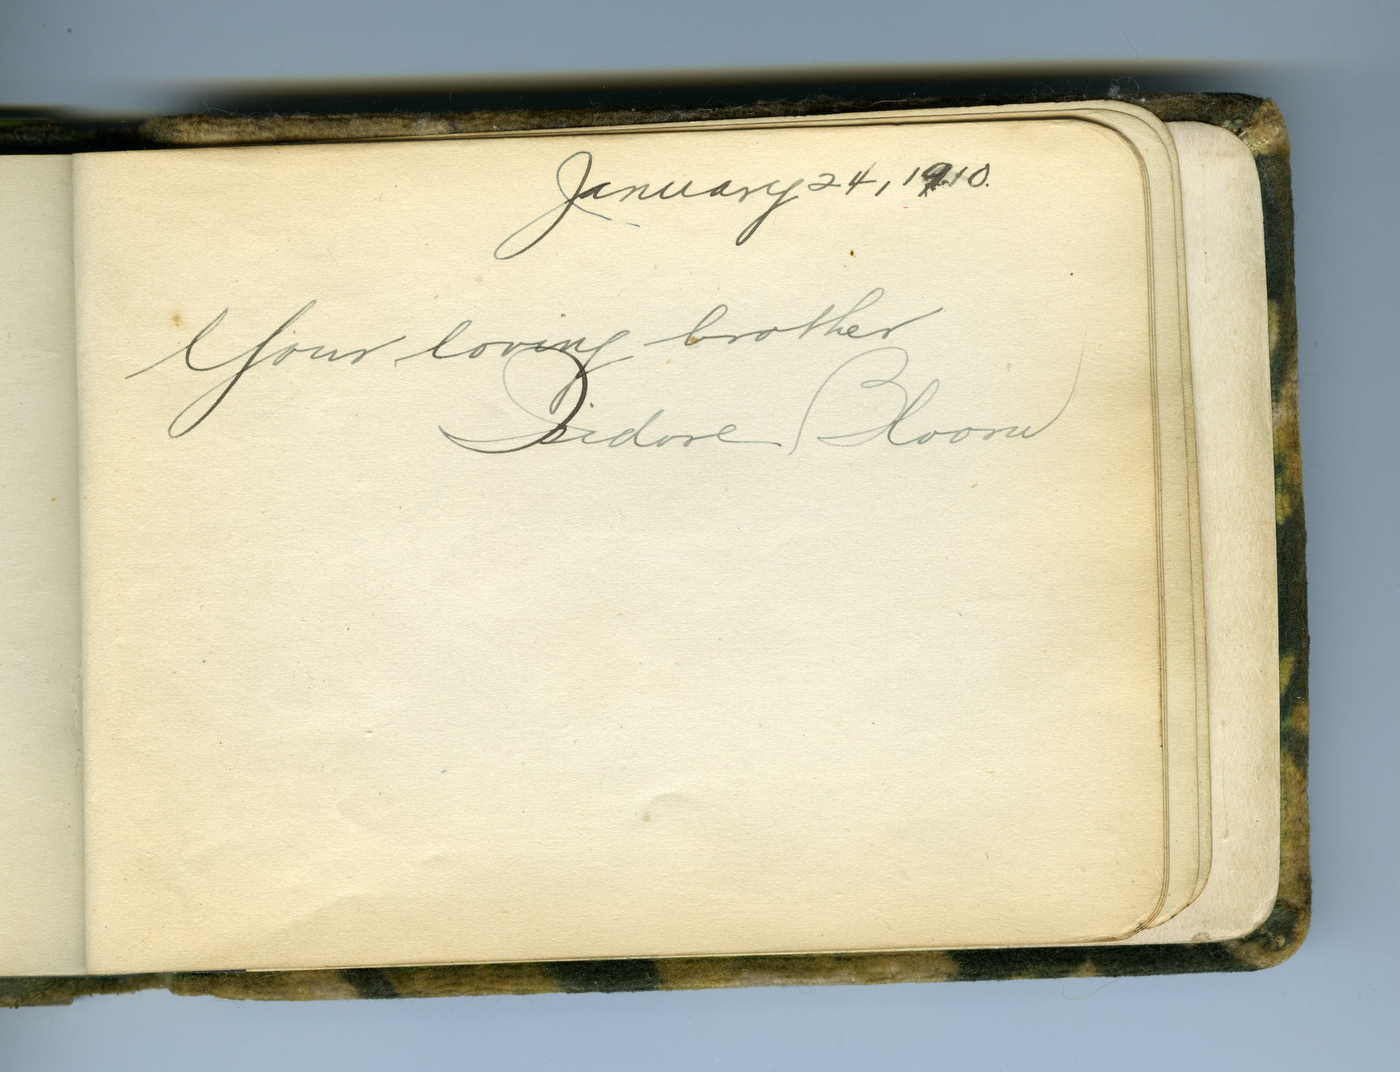 January 24, 1910.
Your loving brother
Isidore Bloom